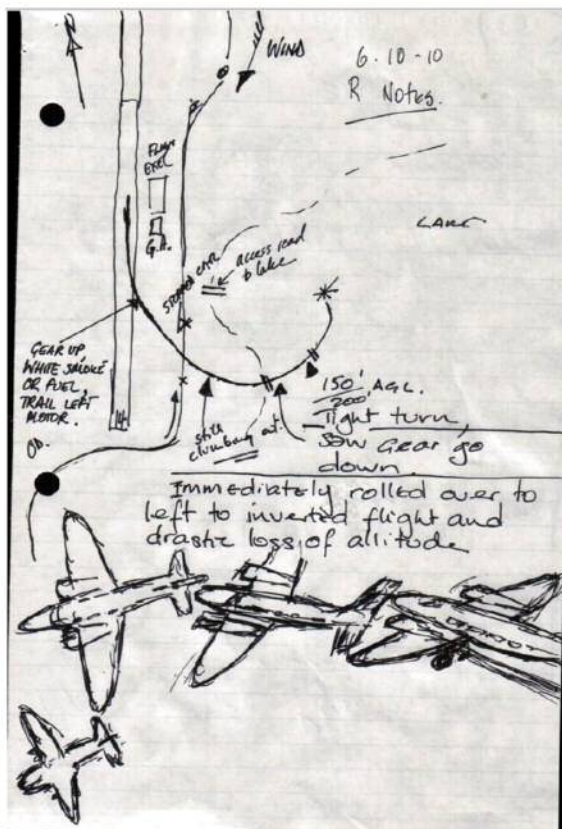 WIND
6.10-10
R NOTES.
FLIGHT
EXEL
G.A.
LAKE
STOPPED CAR
access road
to lake
GEAR UP,
WHITE SMOKE
OR FUEL,
TRAIL LEFT
MOTOR.
14
still
climbing at.
150' AGL.
200'
Tight turn,
Saw Gear go
down.
Immediately rolled over to
left to inverted flight and
drastic loss of altitude